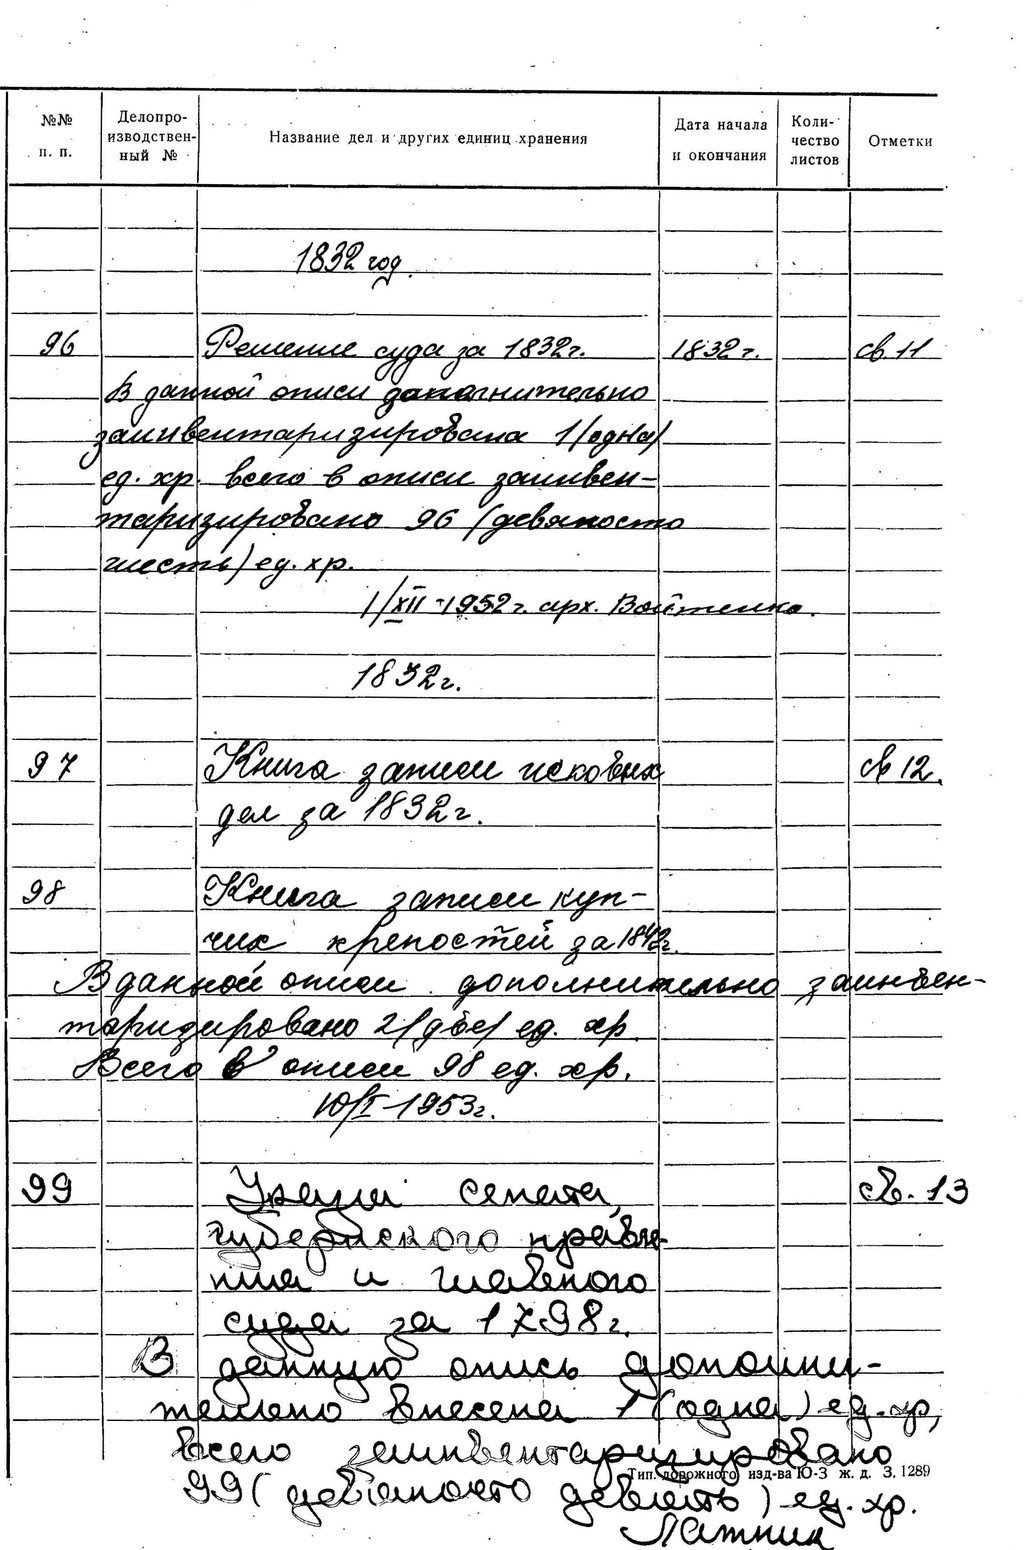 №№ п. п. Делопро-изводствен-ный № Название дел и других единиц хранения Дата начала и окончания Коли-чество листов Отметки
1832 год.
96 Решение суда за 1832г. 1832г. св 11
В данной описи дополнительно
заинвентаризирована 1/одна/
ед. хр. всего в описи заинвен-
таризировано 96 (девяносто
шесть) ед. хр.
1/XII-1952г. арх. Войтенко.
1832г.
97 Книга записи исковых св 12.
дел за 1832г.
98 Книга записи куп-
чих крепостей за 1842г.
В данной описи дополнительно заинвен-
таризировано 2/две/ ед. хр.
Всего в описи 98 ед. хр.
10/I-1953г.
99 Указы сената, св. 13
губернского правле-
ния и главного
суда за 1798г.
В данную опись дополни-
тельно внесена 1 (одна) ед. хр,
всего заинвентаризировано
Тип. дорожного изд-ва Ю-З ж. д. З. 1289
99 (девяносто девять) ед. хр.